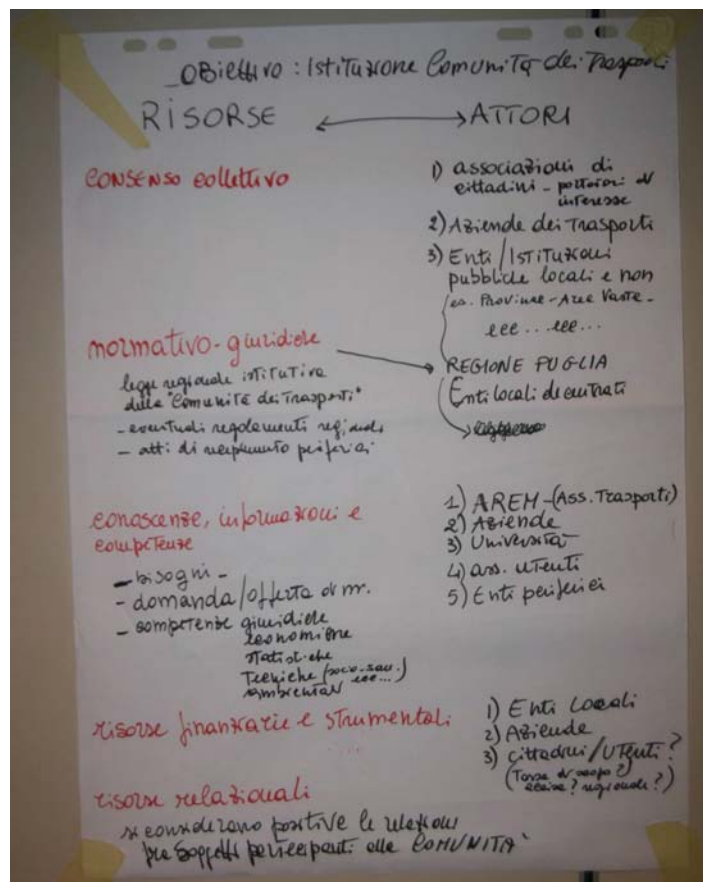 _OBiettivo : Istituzione Comunità dei Trasporti
RISORSE ⟷ ATTORI
CONSENSO collettivo
1) associazioni di
cittadini - portatori di
interesse
2) Aziende dei Trasporti
3) Enti / Istituzioni
pubbliche locali e non
es. Province - Aree Vaste -
ecc... ecc...
normativo-giuridiche
legge regionale istitutiva
della "Comunità dei Trasporti"
- eventuali regolamenti regionali
- atti di recepimento periferici
REGIONE PUGLIA
Enti locali decentrati
conoscenze, informazioni e
competenze
- bisogni -
- domanda/offerta di m.
- competenze giuridiche
economiche
statistiche
Tecniche (socio-san.)
ambientali ecc...)
1) AREM - (Ass. Trasporti)
2) Aziende
3) Università
4) ass. utenti
5) Enti periferici
risorse finanziarie e strumentali
1) Enti Locali
2) Aziende
3) cittadini/Utenti?
(Tassa di scopo?
accise? regionale?)
risorse relazionali
si considerano positive le relazioni
fra soggetti partecipanti alla COMUNITA'